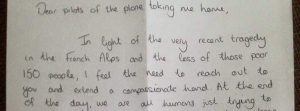 Dear pilots of the plane taking me home,
In light of the very recent tragedy
in the French Alps and the loss of those poor
150 people, I feel the need to reach out to
you and extend a compassionate hand. At the end
of the day, we are all humans just trying to